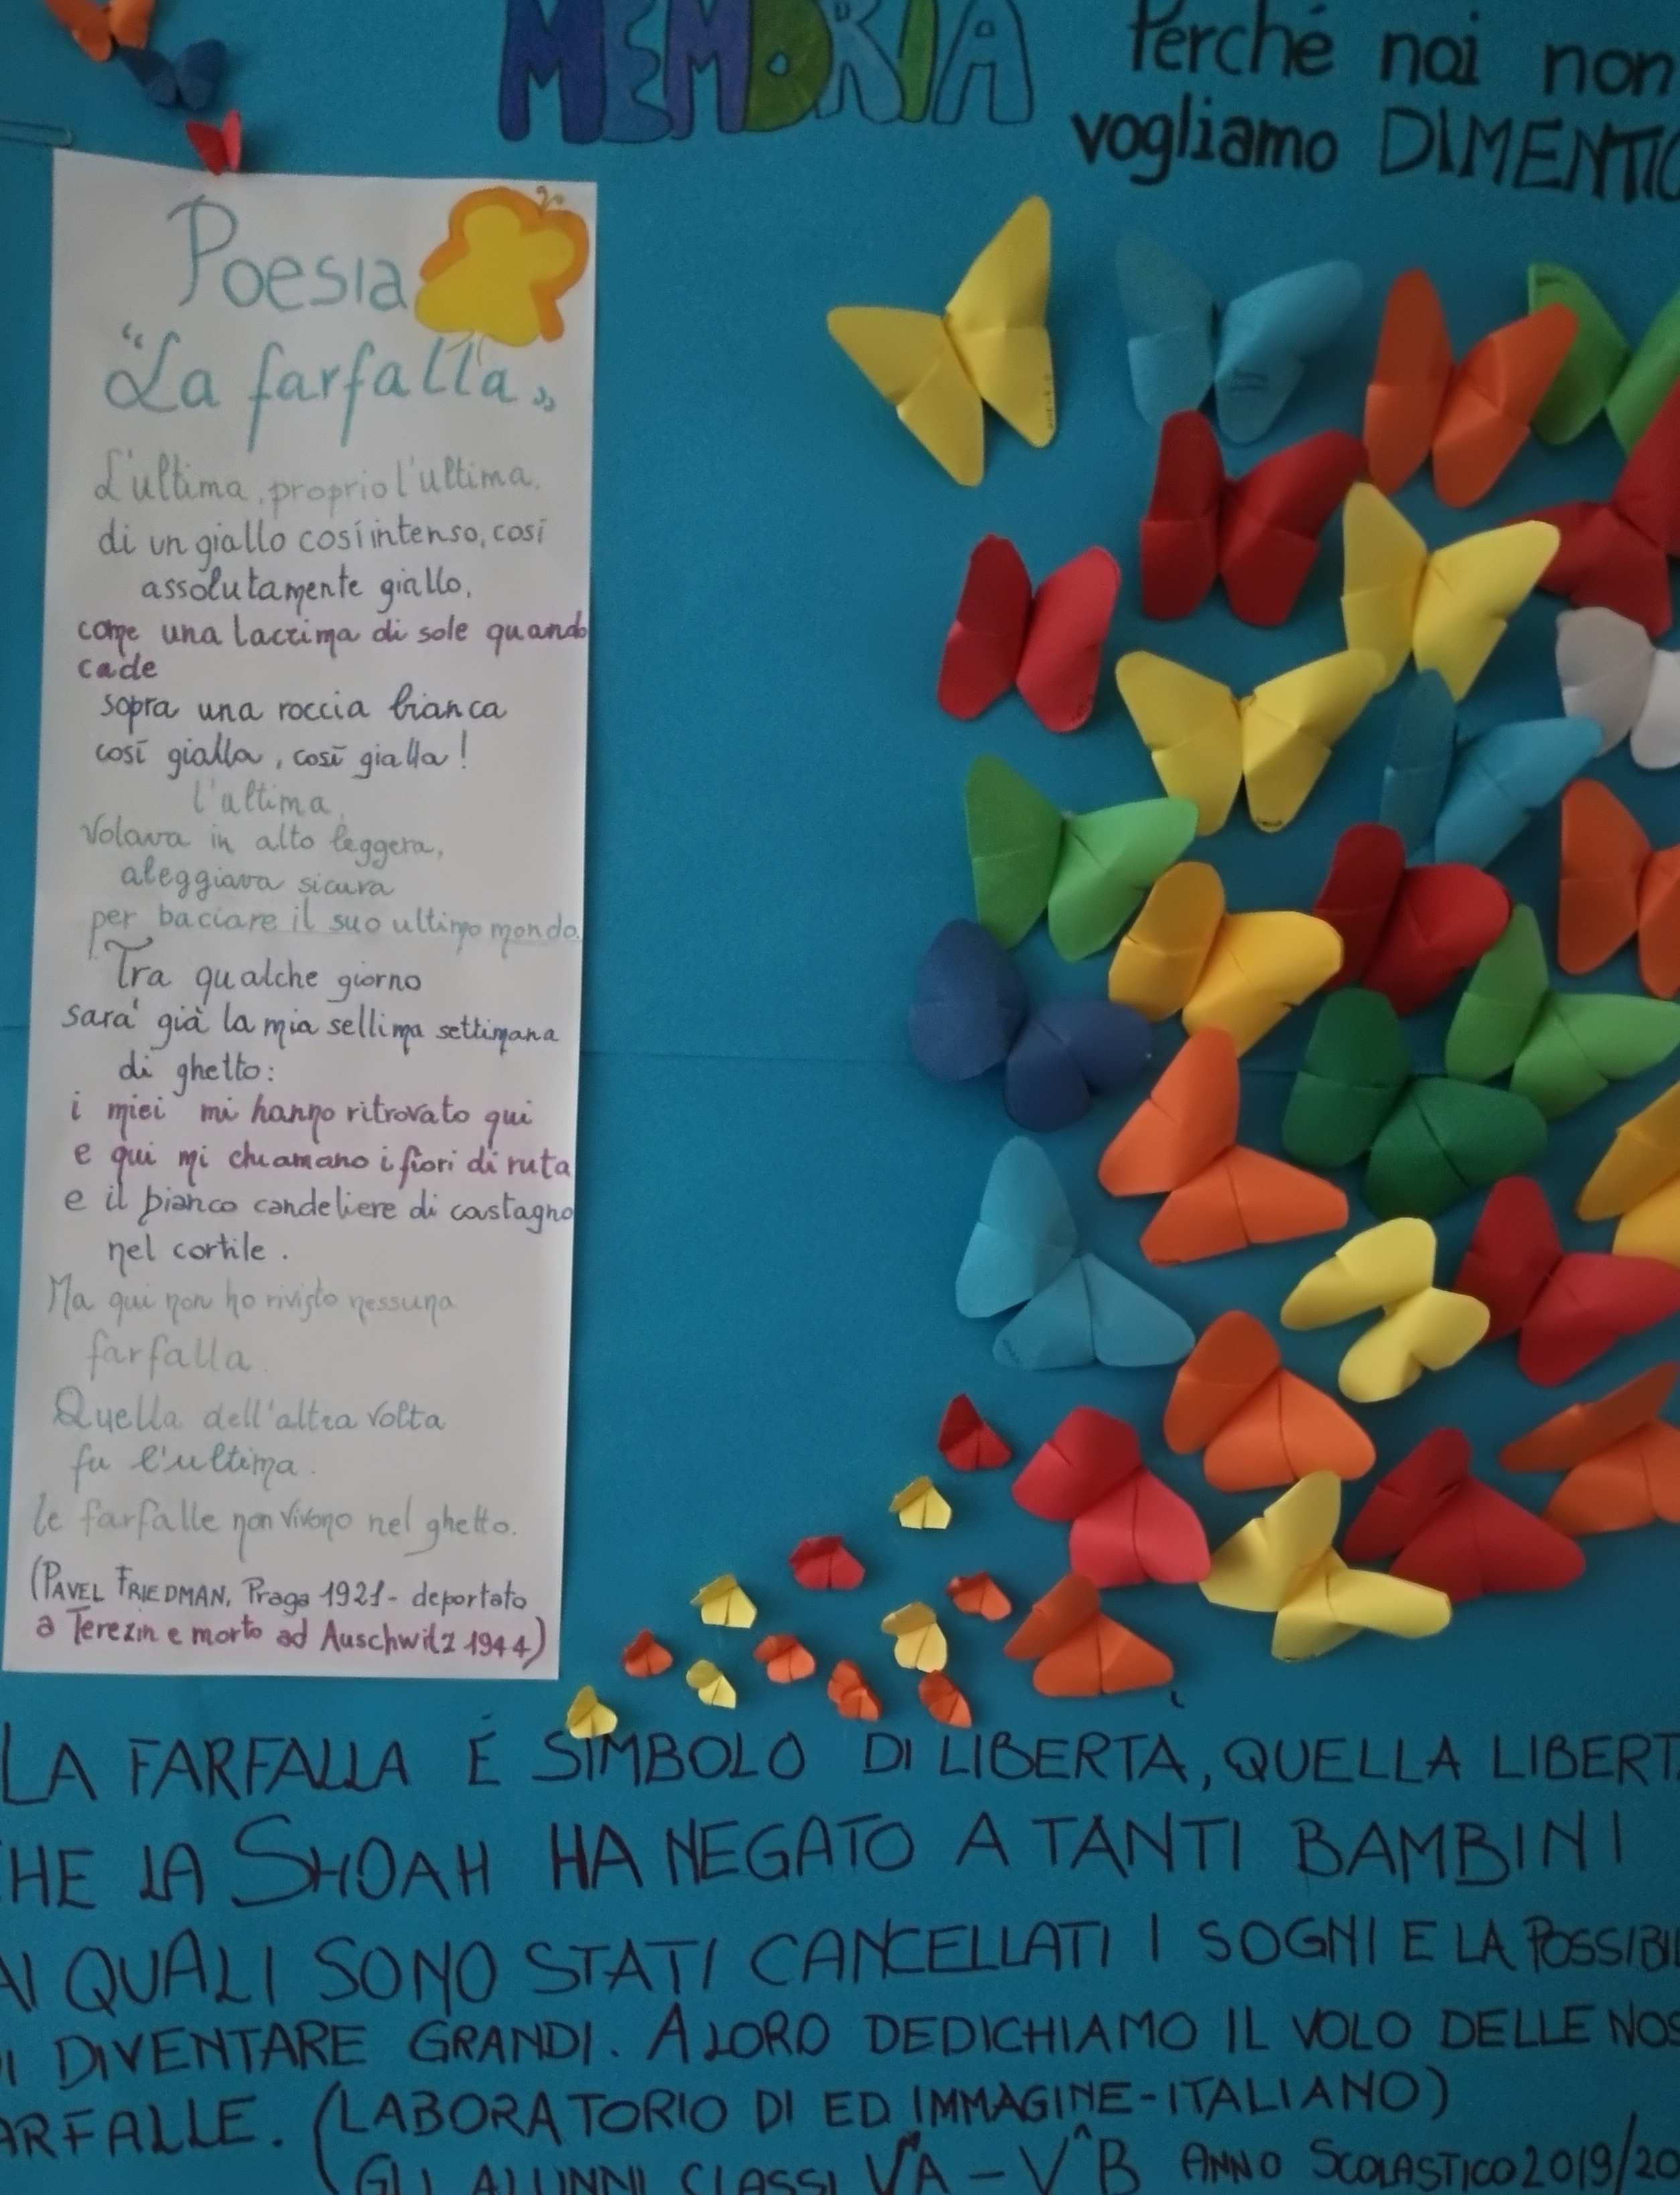 MEMORIA
Perché noi non
vogliamo DIMENTIC
Poesia
"La farfalla"
L'ultima, proprio l'ultima,
di un giallo così intenso, così
assolutamente giallo,
come una lacrima di sole quando
cade
sopra una roccia bianca
così gialla, così gialla!
l'altima,
Volava in alto leggera,
aleggiava sicura
per baciare il suo ultimo mondo.
Tra qualche giorno
sara' già la mia sellima settimana
di ghetto:
i miei mi hanno ritrovato qui
e qui mi chiamano i fiori di ruta
e il bianco candeliere di castagno
nel cortile.
Ma qui non ho rivisto nessuna
farfalla.
Quella dell'altra volta
fu l'ultima.
le farfalle non vivono nel ghetto.
(PAVEL FRIEDMAN, Praga 1921- deportato
a Terezin e morto ad Auschwitz 1944)
LA FARFALLA É SIMBOLO DI LIBERTÀ, QUELLA LIBERT
HE LA SHOAH HA NEGATO A TANTI BAMBINI
AI QUALI SONO STATI CANCELLATI I SOGNI E LA POSSIBIL
DI DIVENTARE GRANDI. A LORO DEDICHIAMO IL VOLO DELLE NOS
ARFALLE. (LABORATORIO DI ED IMMAGINE-ITALIANO)
GLI ALUNNI CLASSI V^A - V^B ANNO SCOLASTICO 2019/20